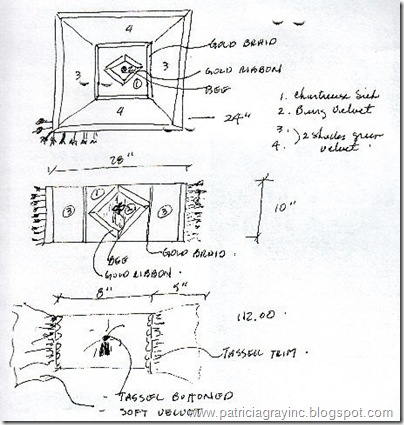 4
GOLD BRAID
3
3
2
GOLD RIBBON
1
BEE
4
1. Chartreux Silk
2. Burg Velvet
3.
4. } 2 Shades green
velvet.
24"
28"
3
1
2
3
10"
BEE
GOLD RIBBON
GOLD BRAID
8"
5"
112.00
TASSEL TRIM
TASSEL BUTTONED
SOFT VELVET
www.patriciagrayinc.blogspot.com